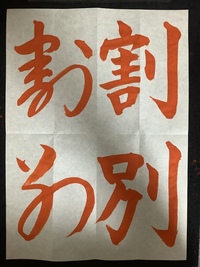 割別
割別